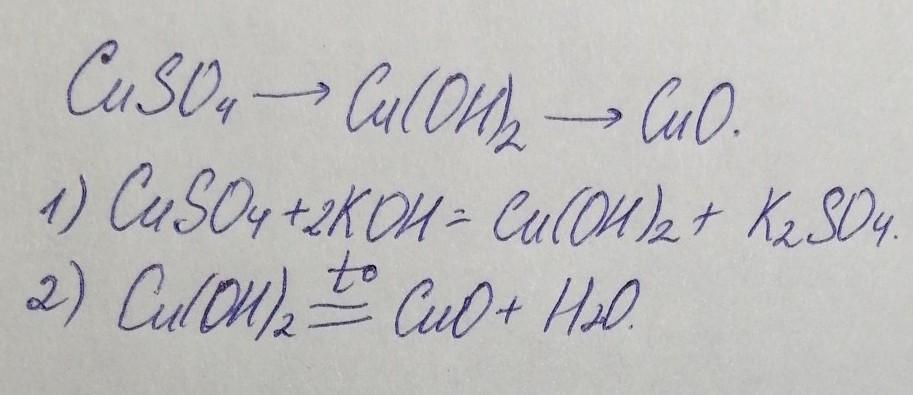 CuSO₄ → Cu(OH)₂ → CuO.
1) CuSO₄ + 2KOH = Cu(OH)₂ + K₂SO₄.
2) Cu(OH)₂ =(t°) CuO + H₂O.